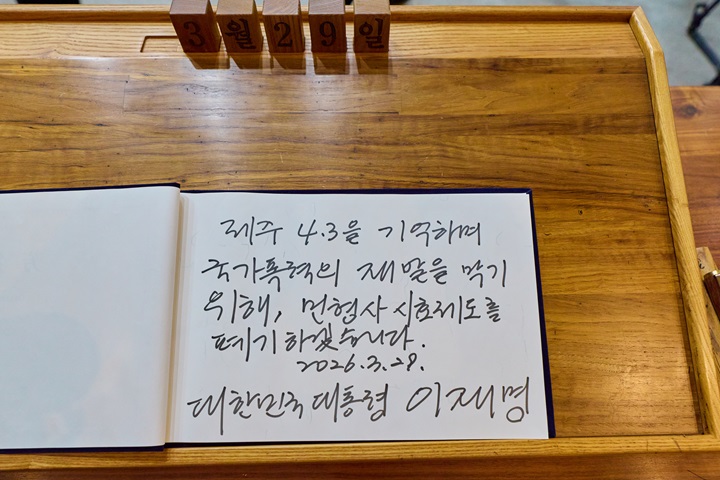 3월29일
제주 4.3을 기억하며
국가폭력의 재발을 막기
위해, 민형사 시효제도를
폐기하겠습니다.
2026.3.29.
대한민국 대통령 이재명